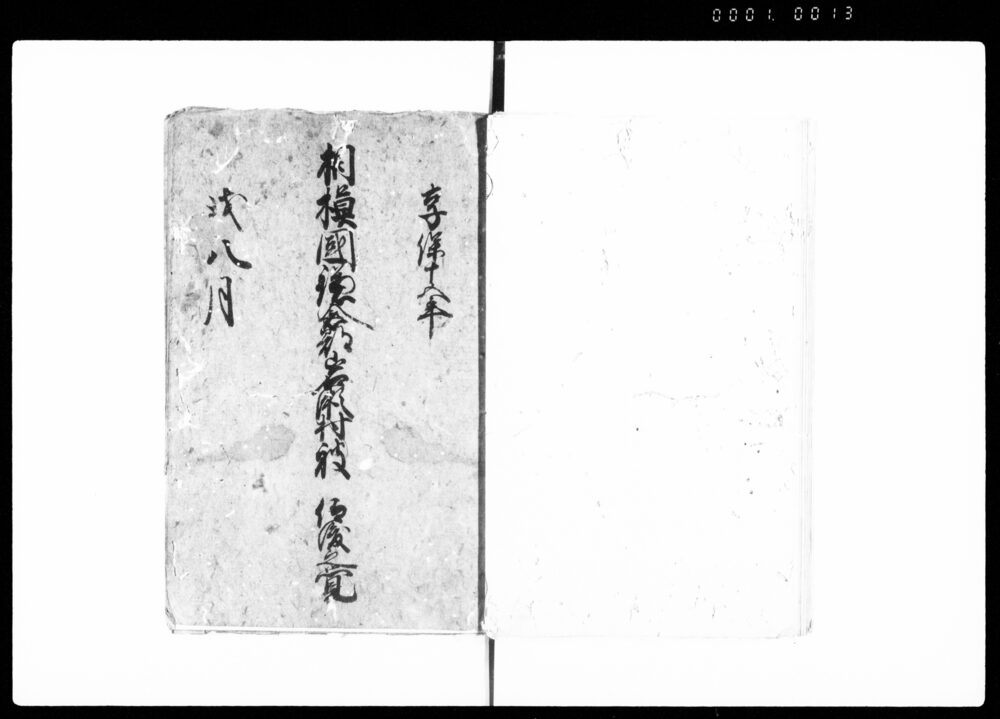 0001. 0013
享保十五年
相模國鎌倉郡岩瀬村被 仰渡之覚
戌八月